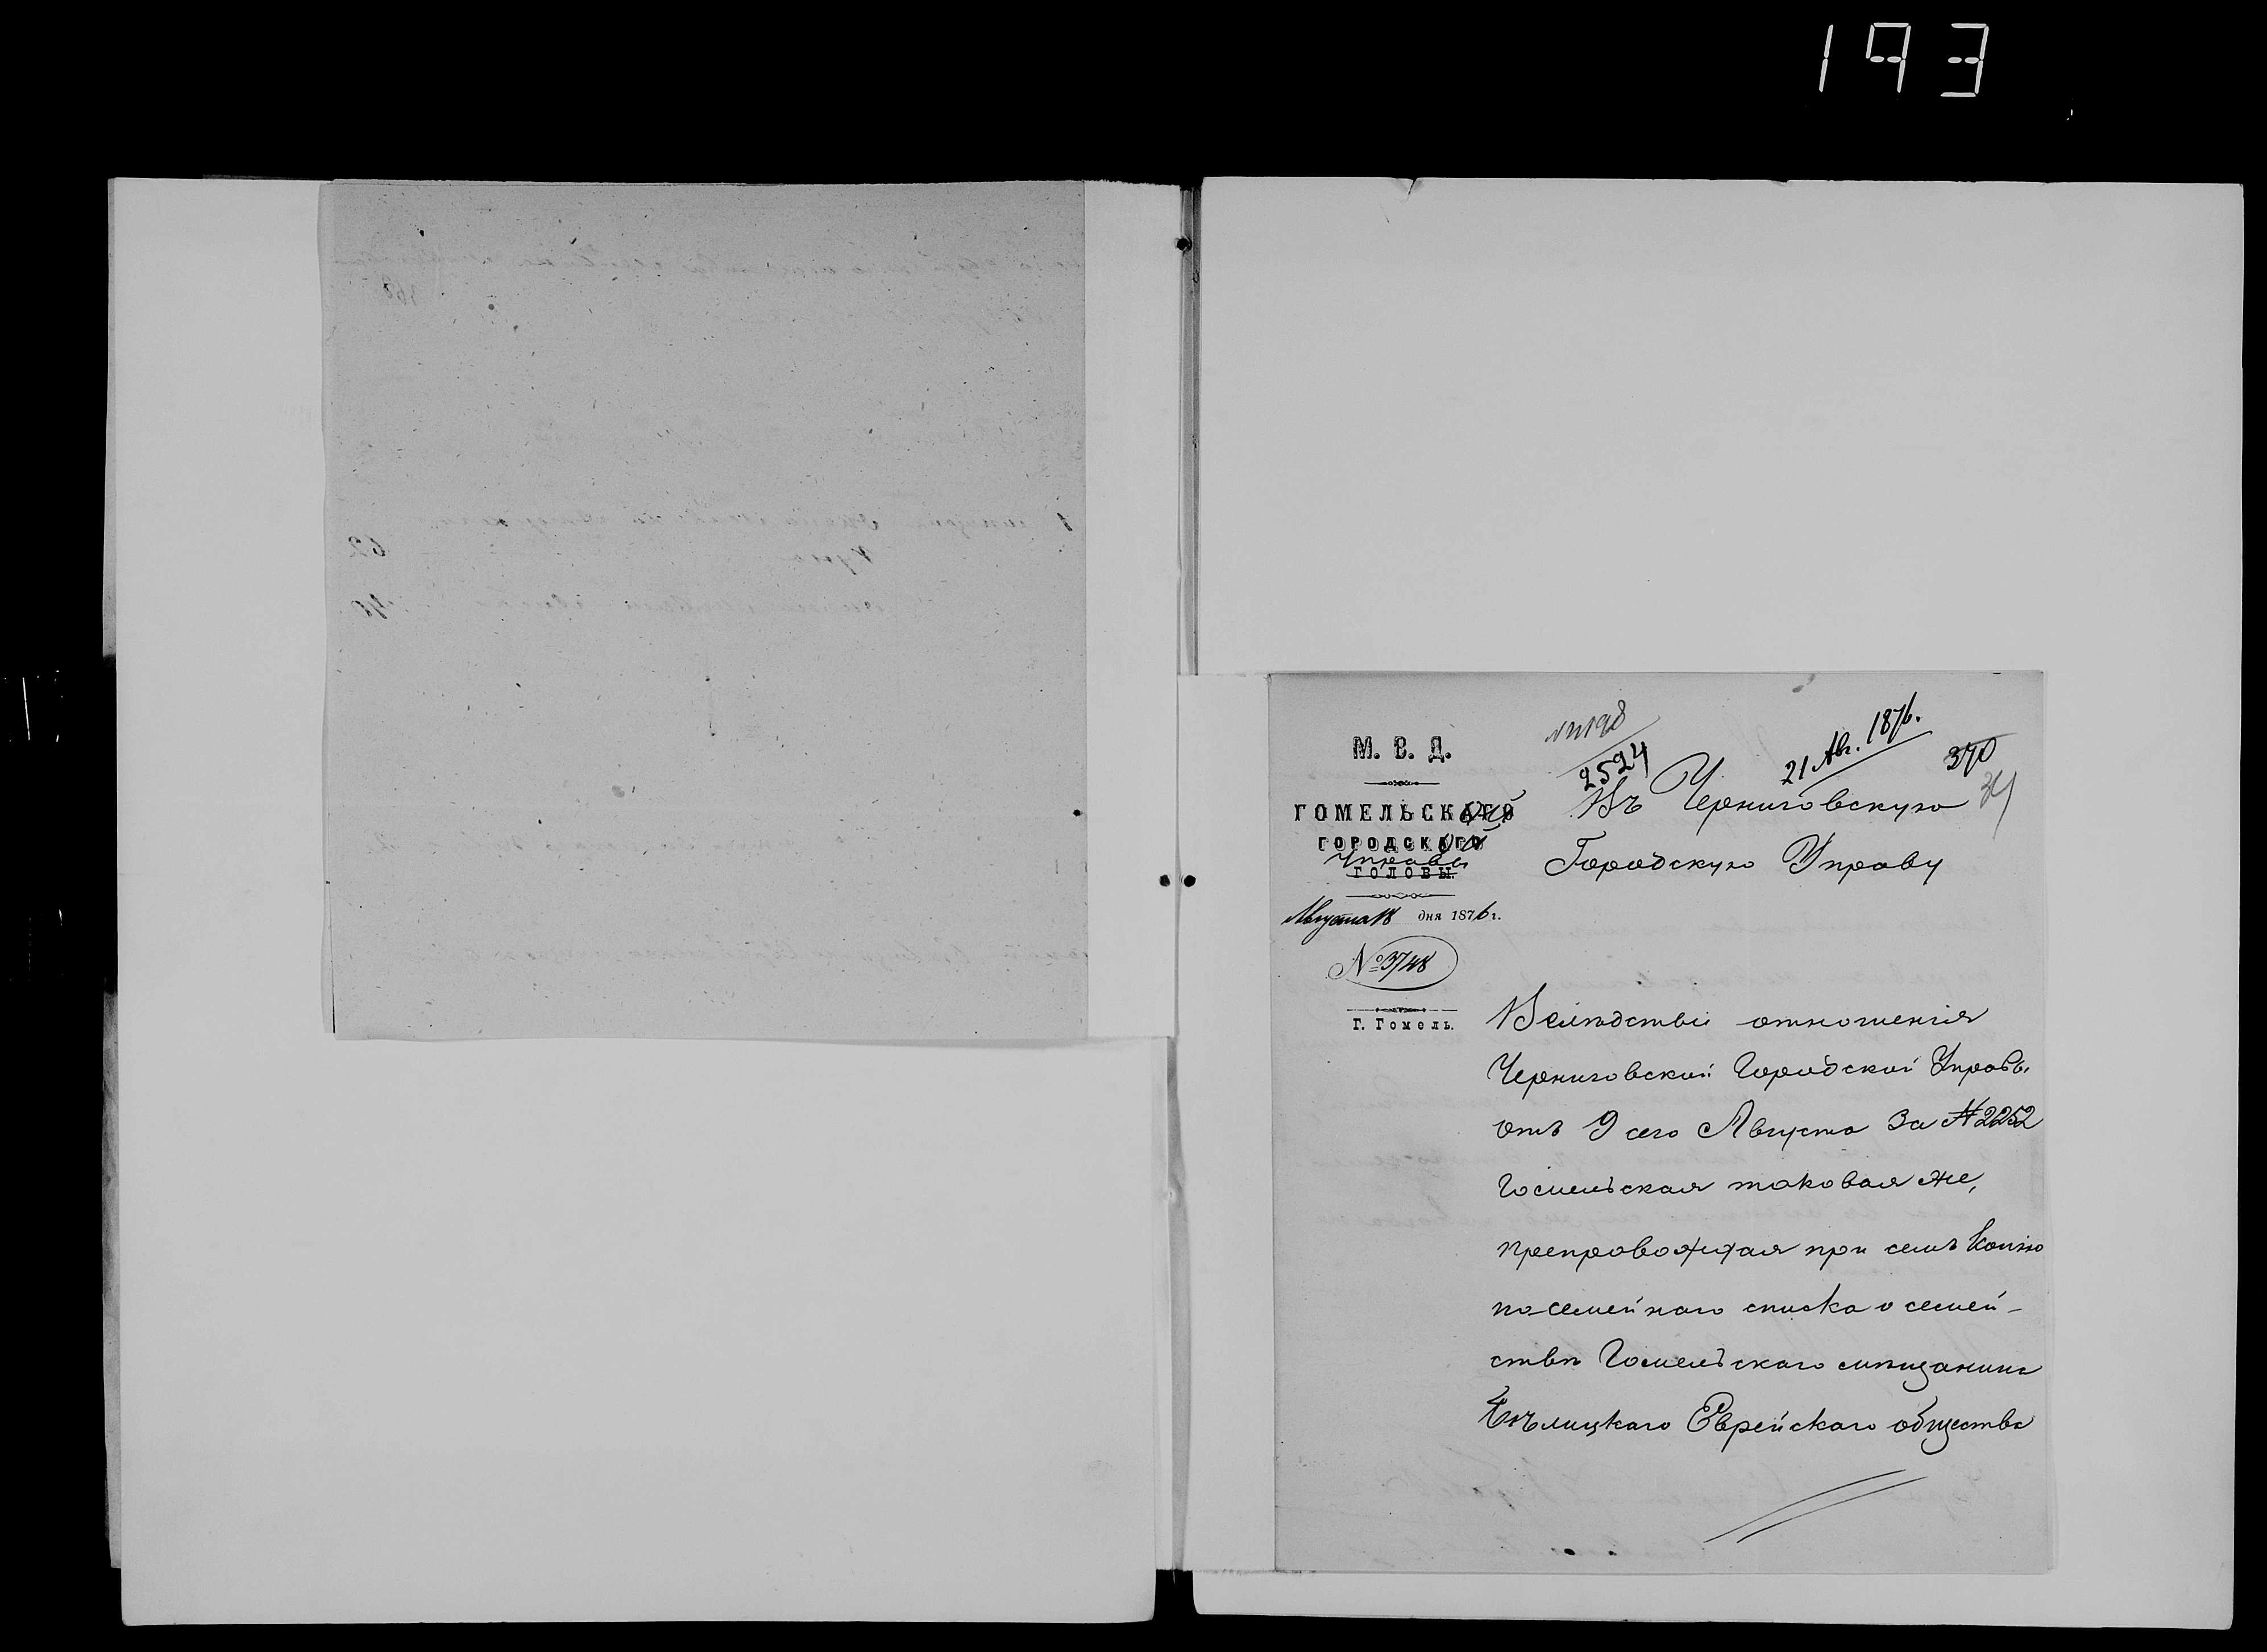 193
М. В. Д.
ГОМЕЛЬСКАГО
ГОРОДСКАГО
Управы
ГОЛОВЫ.
Августа 18 дня 1876 г.
№ 3748
Г. Гомель.
2524
21 Авг. 1876.
370
34
Въ Черниговскую
Городскую Управу
Вслѣдствіе отношенія
Черниговской Городской Управы
отъ 9 сего Августа за № 2252
Гомельская таковая же,
препровождая при семъ копію
посемейнаго списка о семей-
ствѣ Гомельскаго мѣщанина
Бѣлицкаго Еврейскаго общества